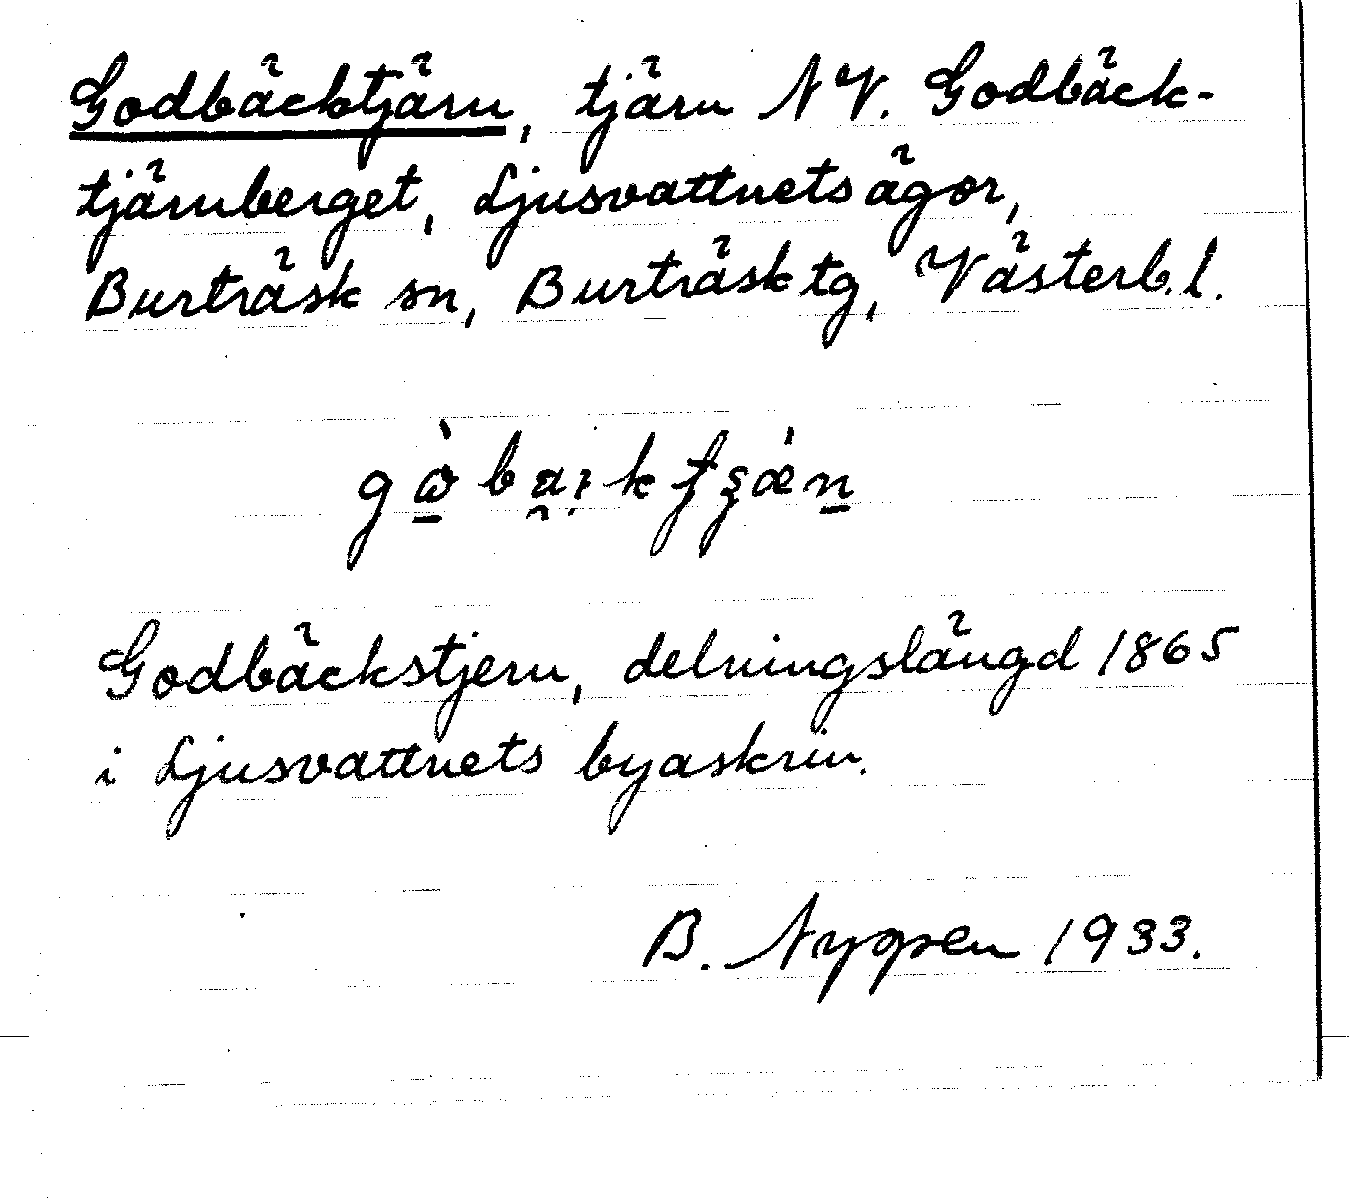 Godbäcktjärn, tjärn NV. Godbäck-
tjärnberget, Ljusvattnets ägor,
Burträsk sn, Burträsk tg, Västerb. l.
Godbäckstjern, delningslängd 1865
i Ljusvattnets byaskrin.
B. Nygren 1933.